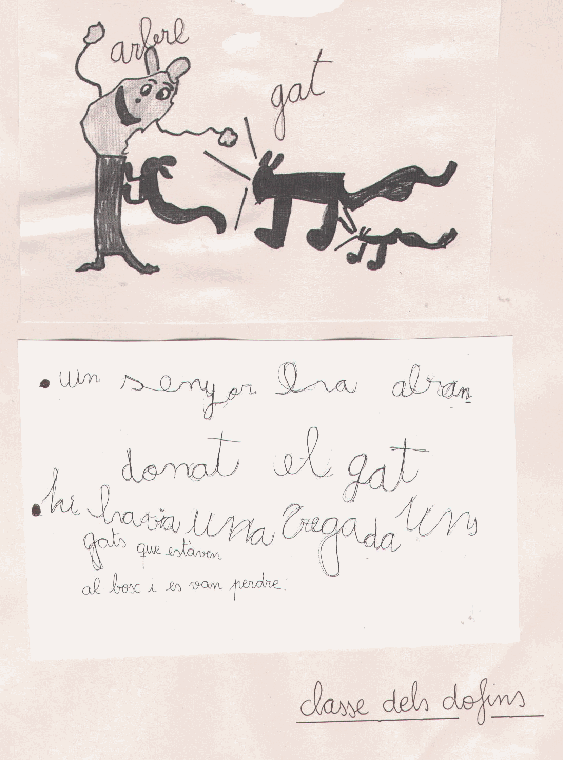 arbre
gat
• un senyor l'ha abran
donat el gat
• hi havia una vegada uns
gats que estaven
al box i es van perdre.
classe dels dofins